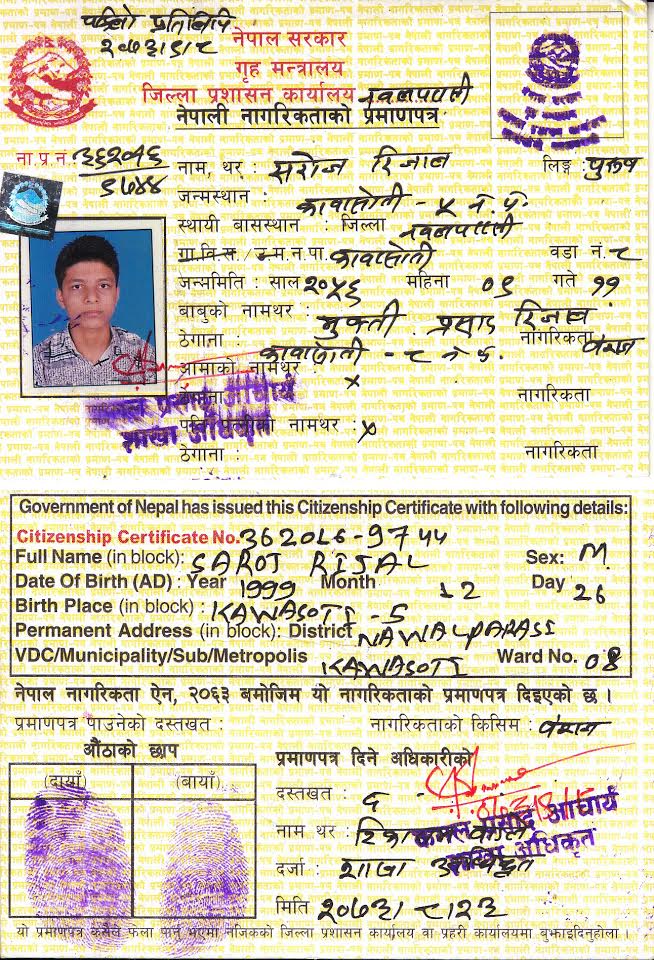 पहिलो प्रतिलिपि
नेपाल सरकार
गृह मन्त्रालय
जिल्ला प्रशासन कार्यालय नवलपरासी
नेपाली नागरिकताको प्रमाणपत्र
ना.प्र.नं. ३६२०५६
९७४४
नाम, थर : सरोज रिजाल लिङ्ग : पुरुष
जन्मस्थान : कावासोती - ५ न.प.
स्थायी बासस्थान : जिल्ला नवलपरासी
गा.वि.स. /उ.म.न.पा. कावासोती वडा नं. ८
जन्ममिति : साल २०५६ महिना ०९ गते ११
बाबुको नामथर : मुक्ती प्रसाद रिजाल
ठेगाना : कावासोती - ८ न.प. नागरिकता वंशज
आमाको नामथर : x
ठेगाना नागरिकता
पति/पत्नीको नामथर : x
ठेगाना : नागरिकता
प्रसाद आचार्य
शाखा अधिकृत
Government of Nepal has issued this Citizenship Certificate with following details:
Citizenship Certificate No. 362056-9744
Full Name (in block): SAROJ RIJAL Sex: M.
Date Of Birth (AD) : Year 1999 Month 12 Day 26
Birth Place (in block) : KAWASOTI - 5
Permanent Address (in block): District NAWALPARASI
VDC/Municipality/Sub/Metropolis KAWASOTI Ward No. 08
नेपाल नागरिकता ऐन, २०६३ बमोजिम यो नागरिकताको प्रमाणपत्र दिइएको छ ।
प्रमाणपत्र पाउनेको दस्तखत : नागरिकताको किसिम : वंशज
औंठाको छाप
(दायाँ) (बायाँ)
प्रमाणपत्र दिने अधिकारीको
दस्तखत :
नाम थर :
प्रसाद आचार्य
शाखा अधिकृत
दर्जा : शाखा अधिकृत
मिति २०७३।८।२३
यो प्रमाणपत्र कसैले फेला पारे नजिकको जिल्ला प्रशासन कार्यालय वा प्रहरी कार्यालयमा बुझाइदिनुहोला ।